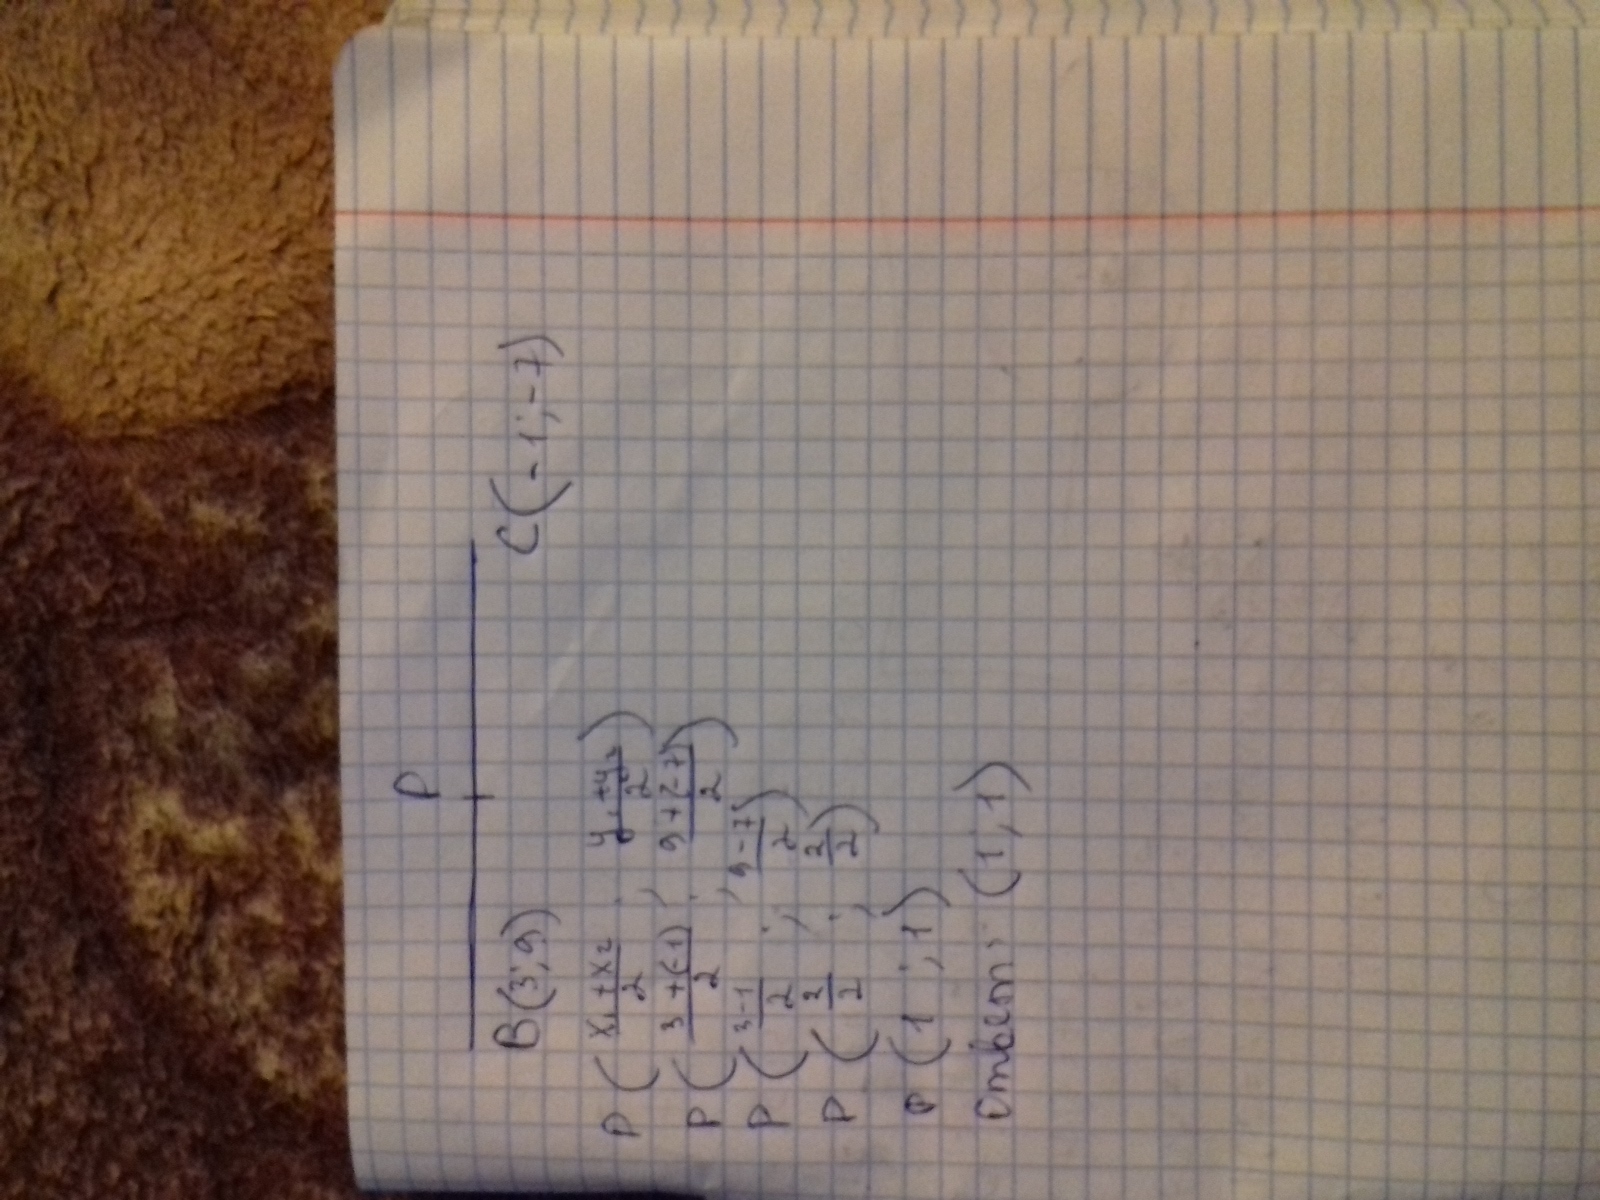 P
B(3; 9) C(-1; -7)
P((x₁+x₂)/2 ; (y₁+y₂)/2)
P((3+(-1))/2 ; (9+(-7))/2)
P((3-1)/2 ; (9-7)/2)
P(2/2 ; 2/2)
P(1 ; 1)
Ответ: (1; 1)